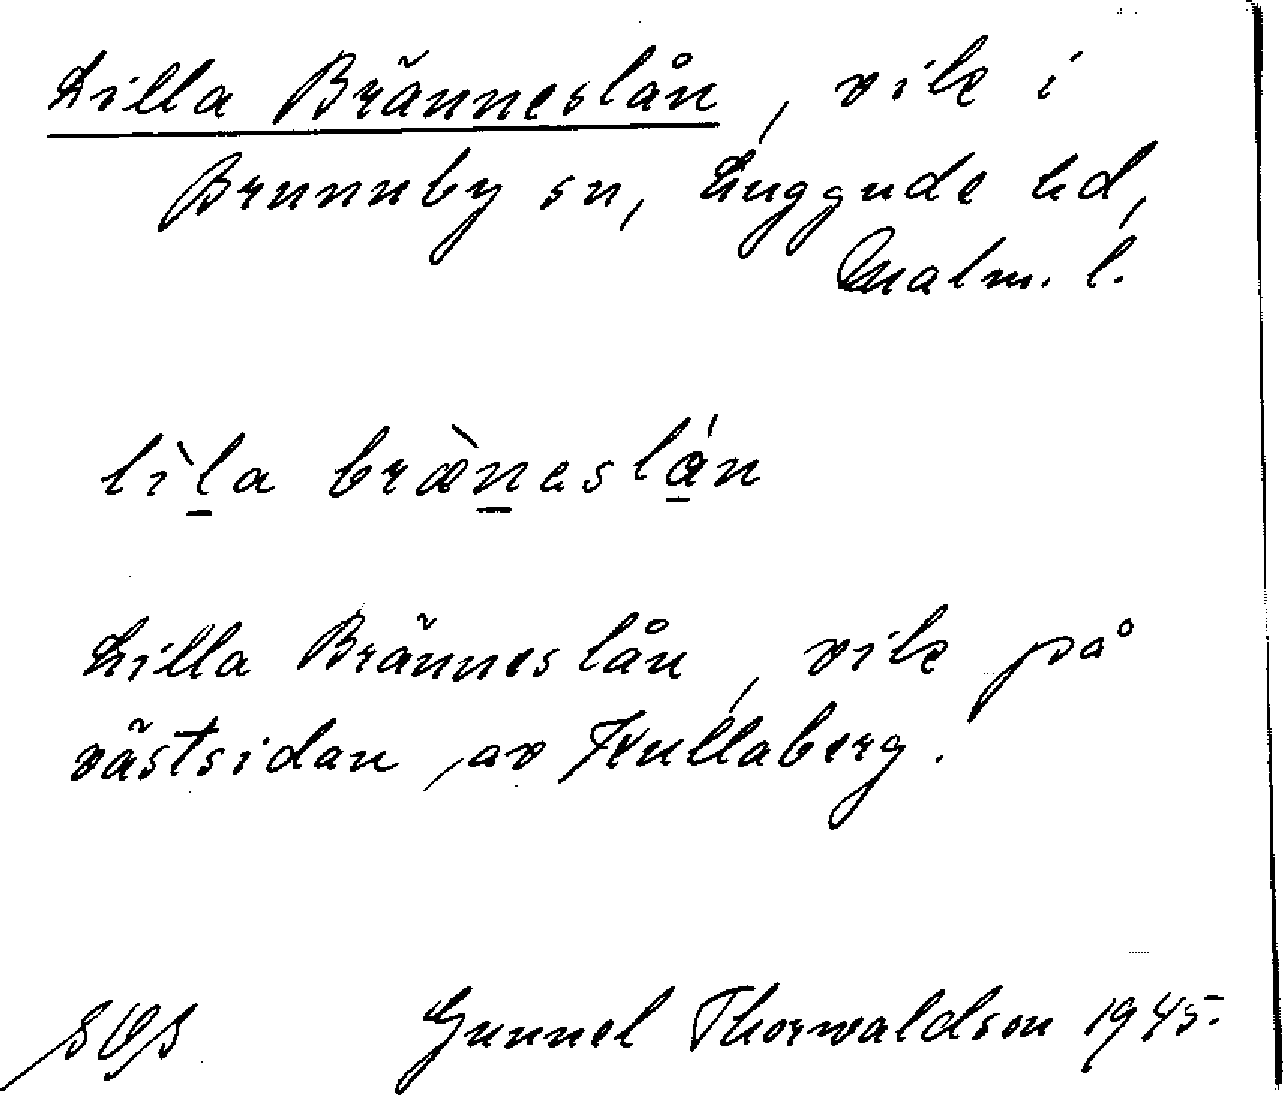 Lilla Bränneslån, vik i
Brunnby sn, Luggude hd,
Malm. l.
lìla brænesla̍n
Lilla Bränneslån, vik på
västsidan av Kullaberg.
Gunnel Thorwaldson 1945.